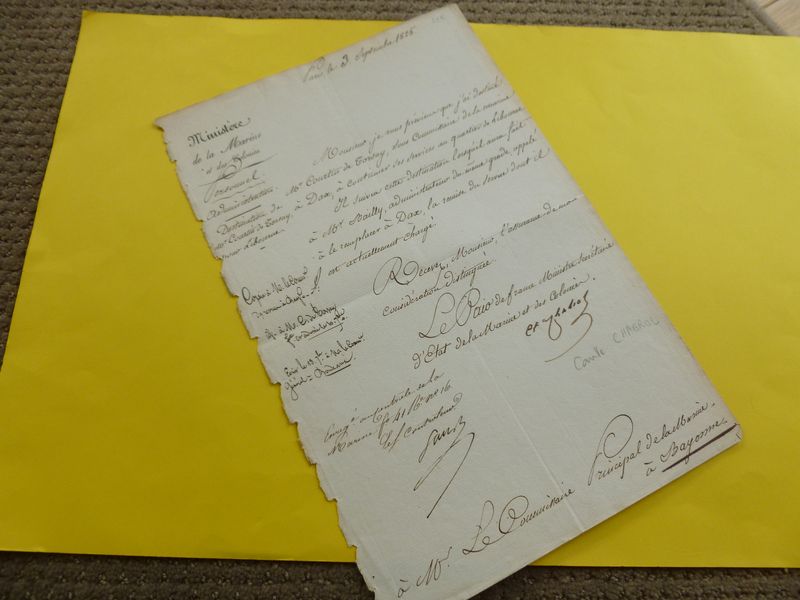 Paris, le 3 Septembre 1825.
Ministère
de la Marine
et des Colonies
Personnel
Administration
Destination de
Mr Courtès de Torsay,
pour Libourne
Monsieur, je vous préviens que j'ai destiné
Mr Courtès de Torsay, sous Commissaire de la marine
à Dax, à continuer ses services au quartier de Libourne.
Il suivra cette destination lorsqu'il aura fait
à Mr Bailly, administrateur du même grade, appelé
à le remplacer à Dax, la remise du service dont il
est actuellement chargé.
Recevez, Monsieur, l'assurance de ma
considération distinguée.
Le Pair de france Ministre Secrétaire
d'Etat de la Marine et des Colonies.
Cte Chabrol
Comte CHABROL
au Contrôle de la
Marine fo 41 No 16
Le Contrôleur
à Mr. Le Commissaire Principal de la Marine.
à Bayonne